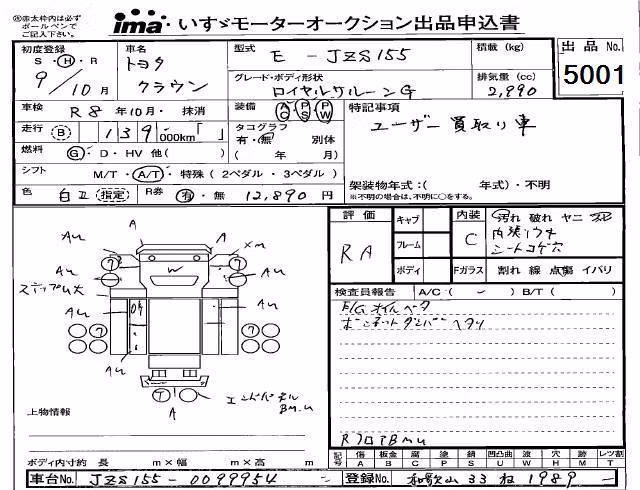 ※赤太枠内は必ず
ボールペンで
ご記入下さい。
ima・いすゞモーターオークション出品申込書
初度登録
S・H・R
9/10月
車名
トヨタ
クラウン
型式
E-JZS155
積載(kg)
出品No.
5001
グレード・ボディ形状
ロイヤルサルーンG
排気量(cc)
2,990
車検
R8年10月・抹消
装備
AC PS PW
特記事項
ユーザー買取り車
走行
B
139,000km「 」
タコグラフ
有・無 別体
( 年 月)
燃料
G・D・HV 他( )
シフト
M/T・A/T・特殊(2ペダル・3ペダル)
架装物年式:( 年式)・不明
※不明の場合は、不明に○をする。
色
白Ⅱ(指定)
R券
有・無 12,890円
評価
RA
キャブ
フレーム
ボディ
内装
C
汚れ 破れ ヤニ
内張ウキ
シートコゲ穴
Fガラス
割れ 線 点傷 イバリ
検査員報告
A/C( - ) B/T( )
E/Gオイルベタ
ボンネットダンパーヘタリ
RフロアBmu
A
A
Au
Xm
Au
W
Au
ステップ凹大
Au
Au
Au
Au
7
7
7
7
7
A
エンドパネル
Bmu
上物情報
ボディ内寸約 長 m×幅 m×高 m
記号
傷 板金 腐 塗 錆 凹凸曲 波 穴 跡 レツ割
A B C P S U W H M T
車台No.
JZS155-0099954
登録No.
和歌山 33 ね 1989